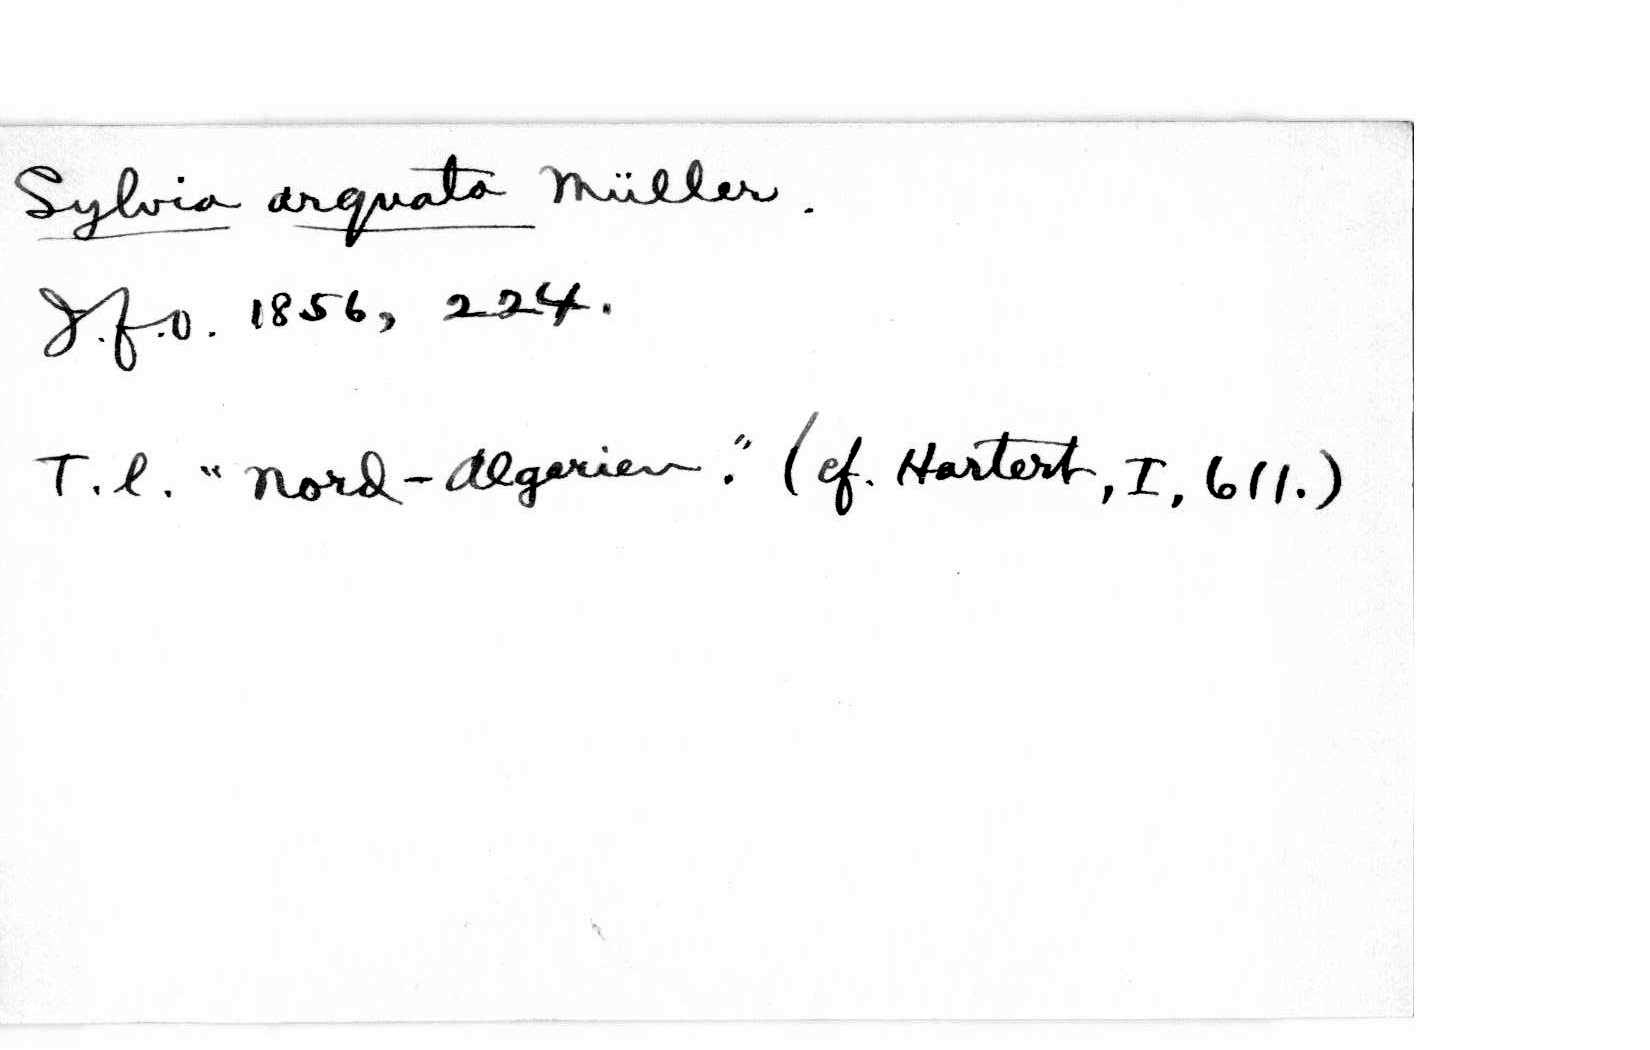 Sylvia arquata Müller.
J.f.O. 1856, 224.
T.l. "Nord-Algerien." (cf. Hartert, I, 611.)